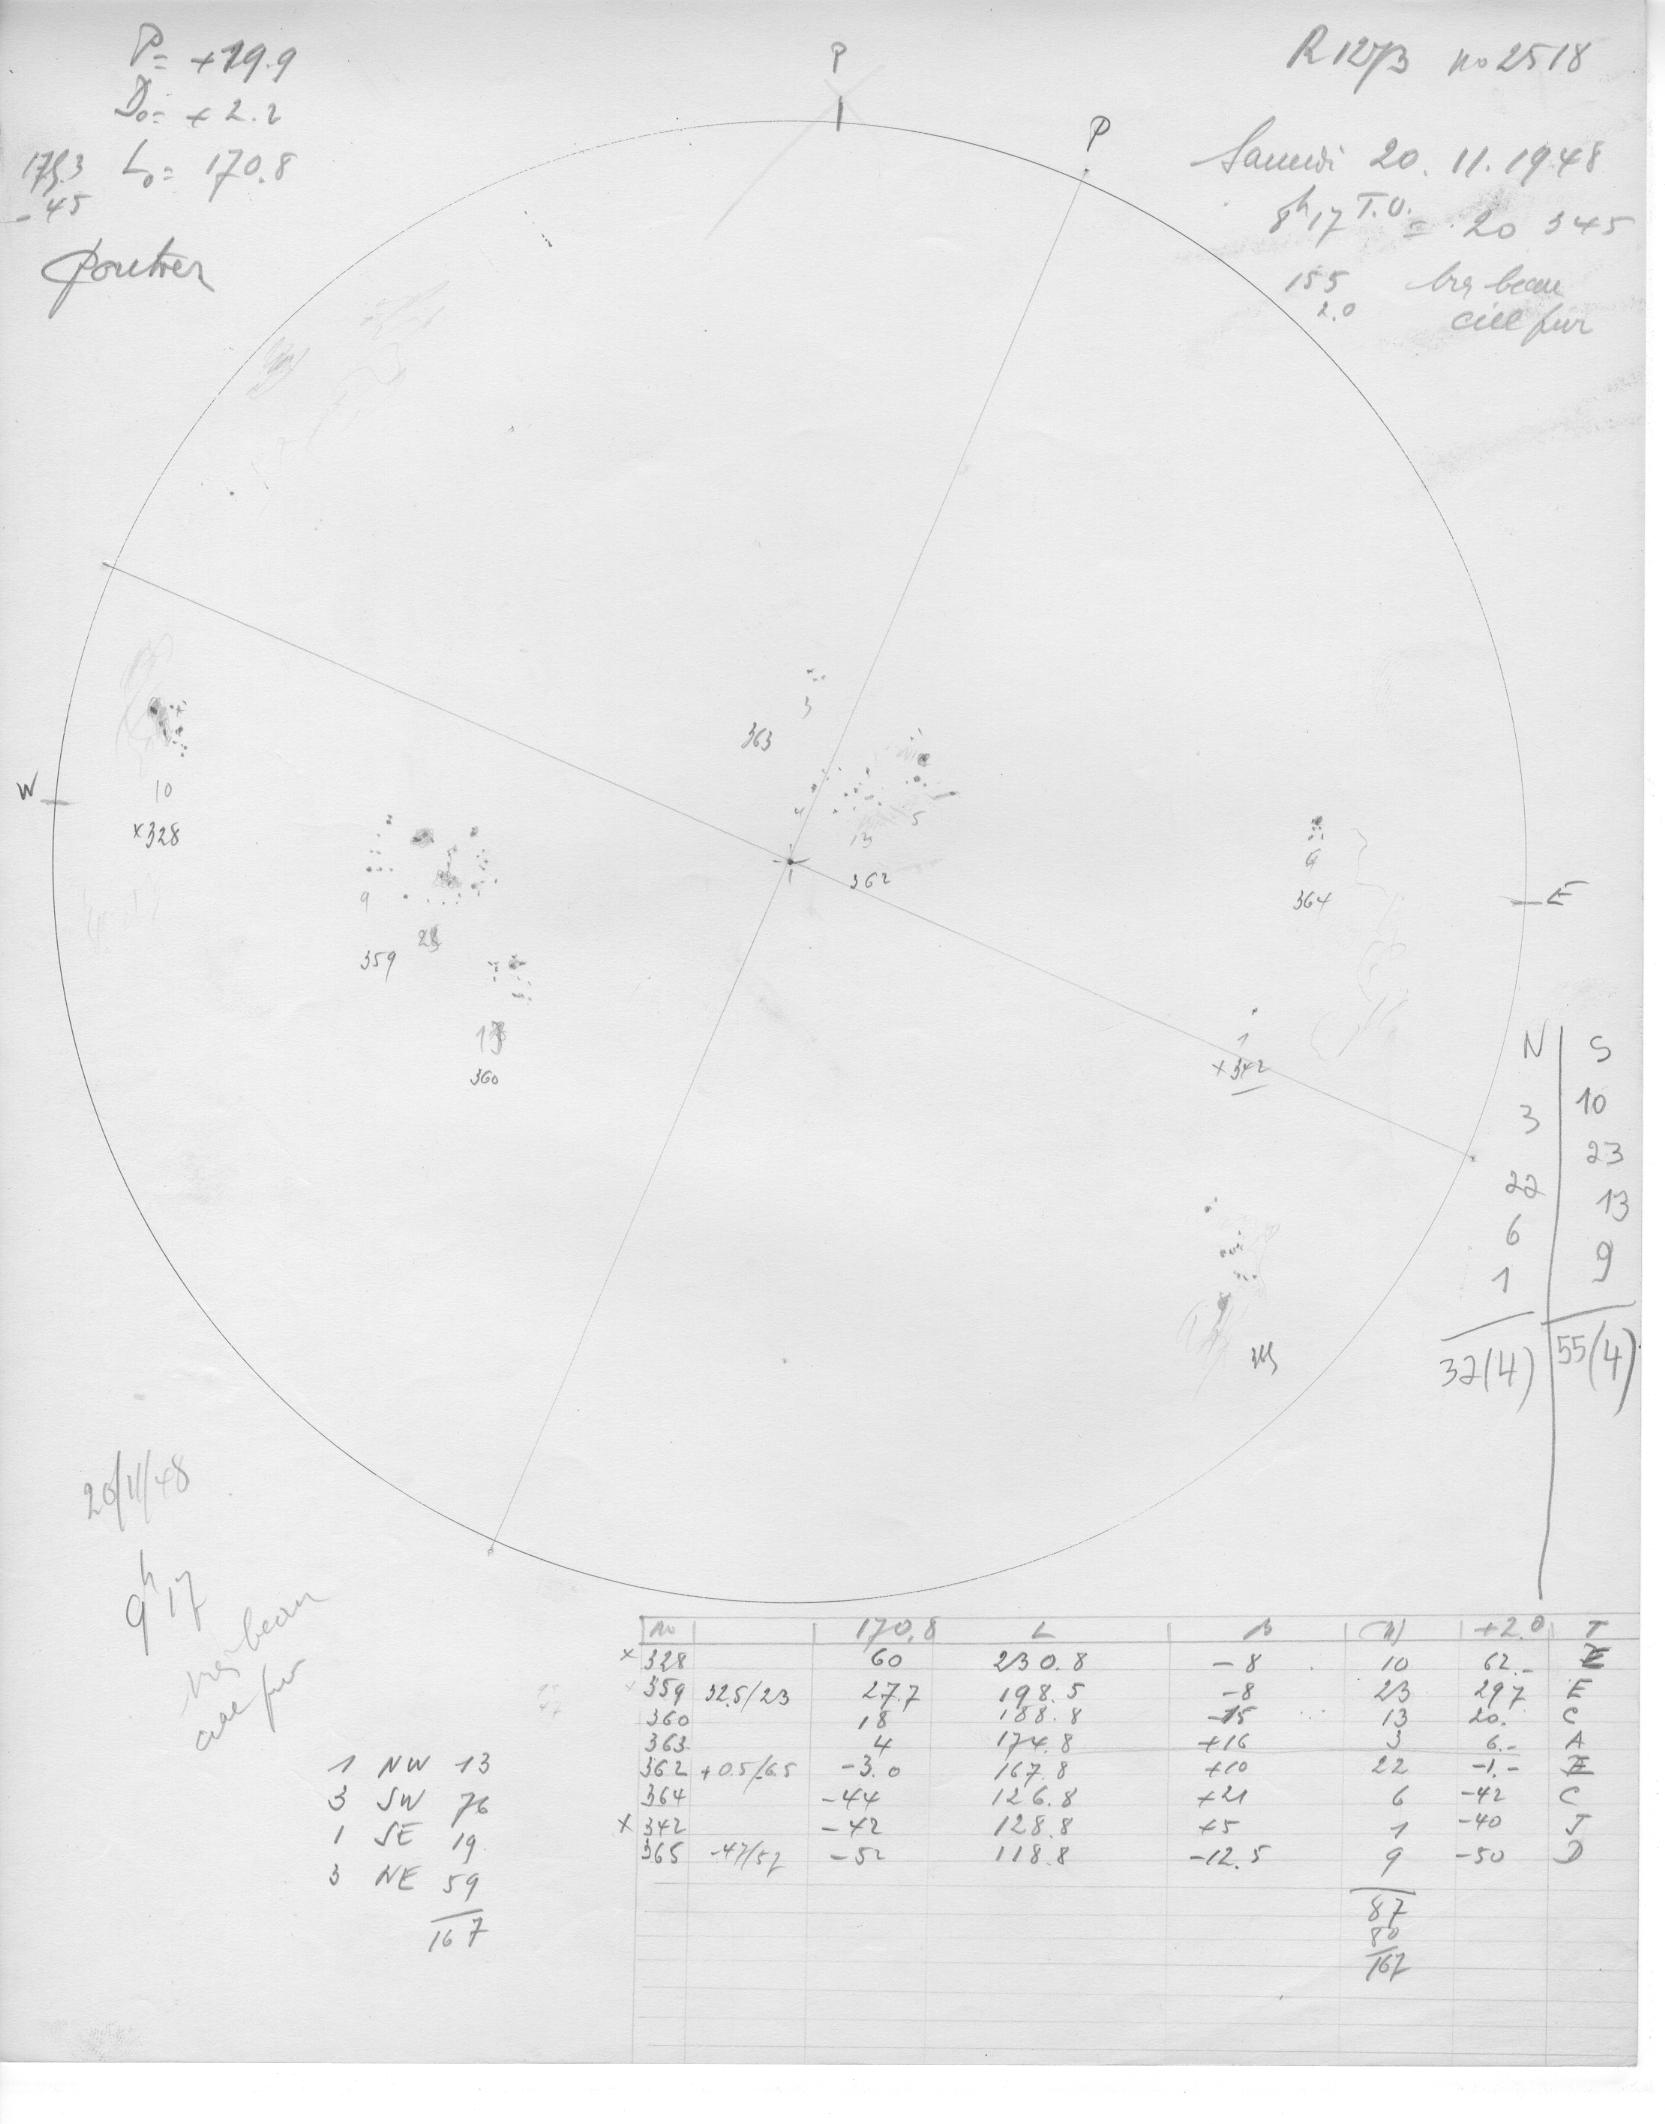 P= +19.9
Do= +2.2
L₀= 170.8
-45
P
P
R 1273 no 2518
Samedi 20.11.1948
8h17 T.U. = 20 345
155 très beau
2.0 ciel pur
W
E
10
×328
9
23
359
13
360
3
363
4
13
5
362
6
364
1
×342
365
N | S
3 | 10
22 | 23
6 | 13
1 | 9
32(4) | 55(4)
20/11/48
9h17
très beau
ciel pur
1 NW 13
3 SW 76
1 SE 19
3 NE 59
167
No 170.8 L B (N) +2.0 T
× 328 60 230.8 -8 10 62.- E
359 32.5/23 27.7 198.5 -8 23 297 E
360 18 188.8 -15 13 20. C
363 4 174.8 +16 3 6.- A
362 +0.5/-6.5 -3.0 167.8 +10 22 -1.- E
364 -44 126.8 +21 6 -42 C
× 342 -42 128.8 +5 1 -40 J
365 -47/57 -52 118.8 -12.5 9 -50 D
87
80
167